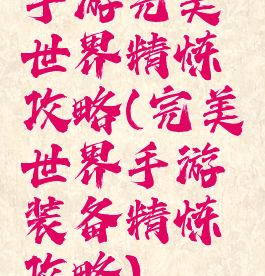 手游完美
世界精炼
攻略(完美
世界手游
装备精炼
攻略)